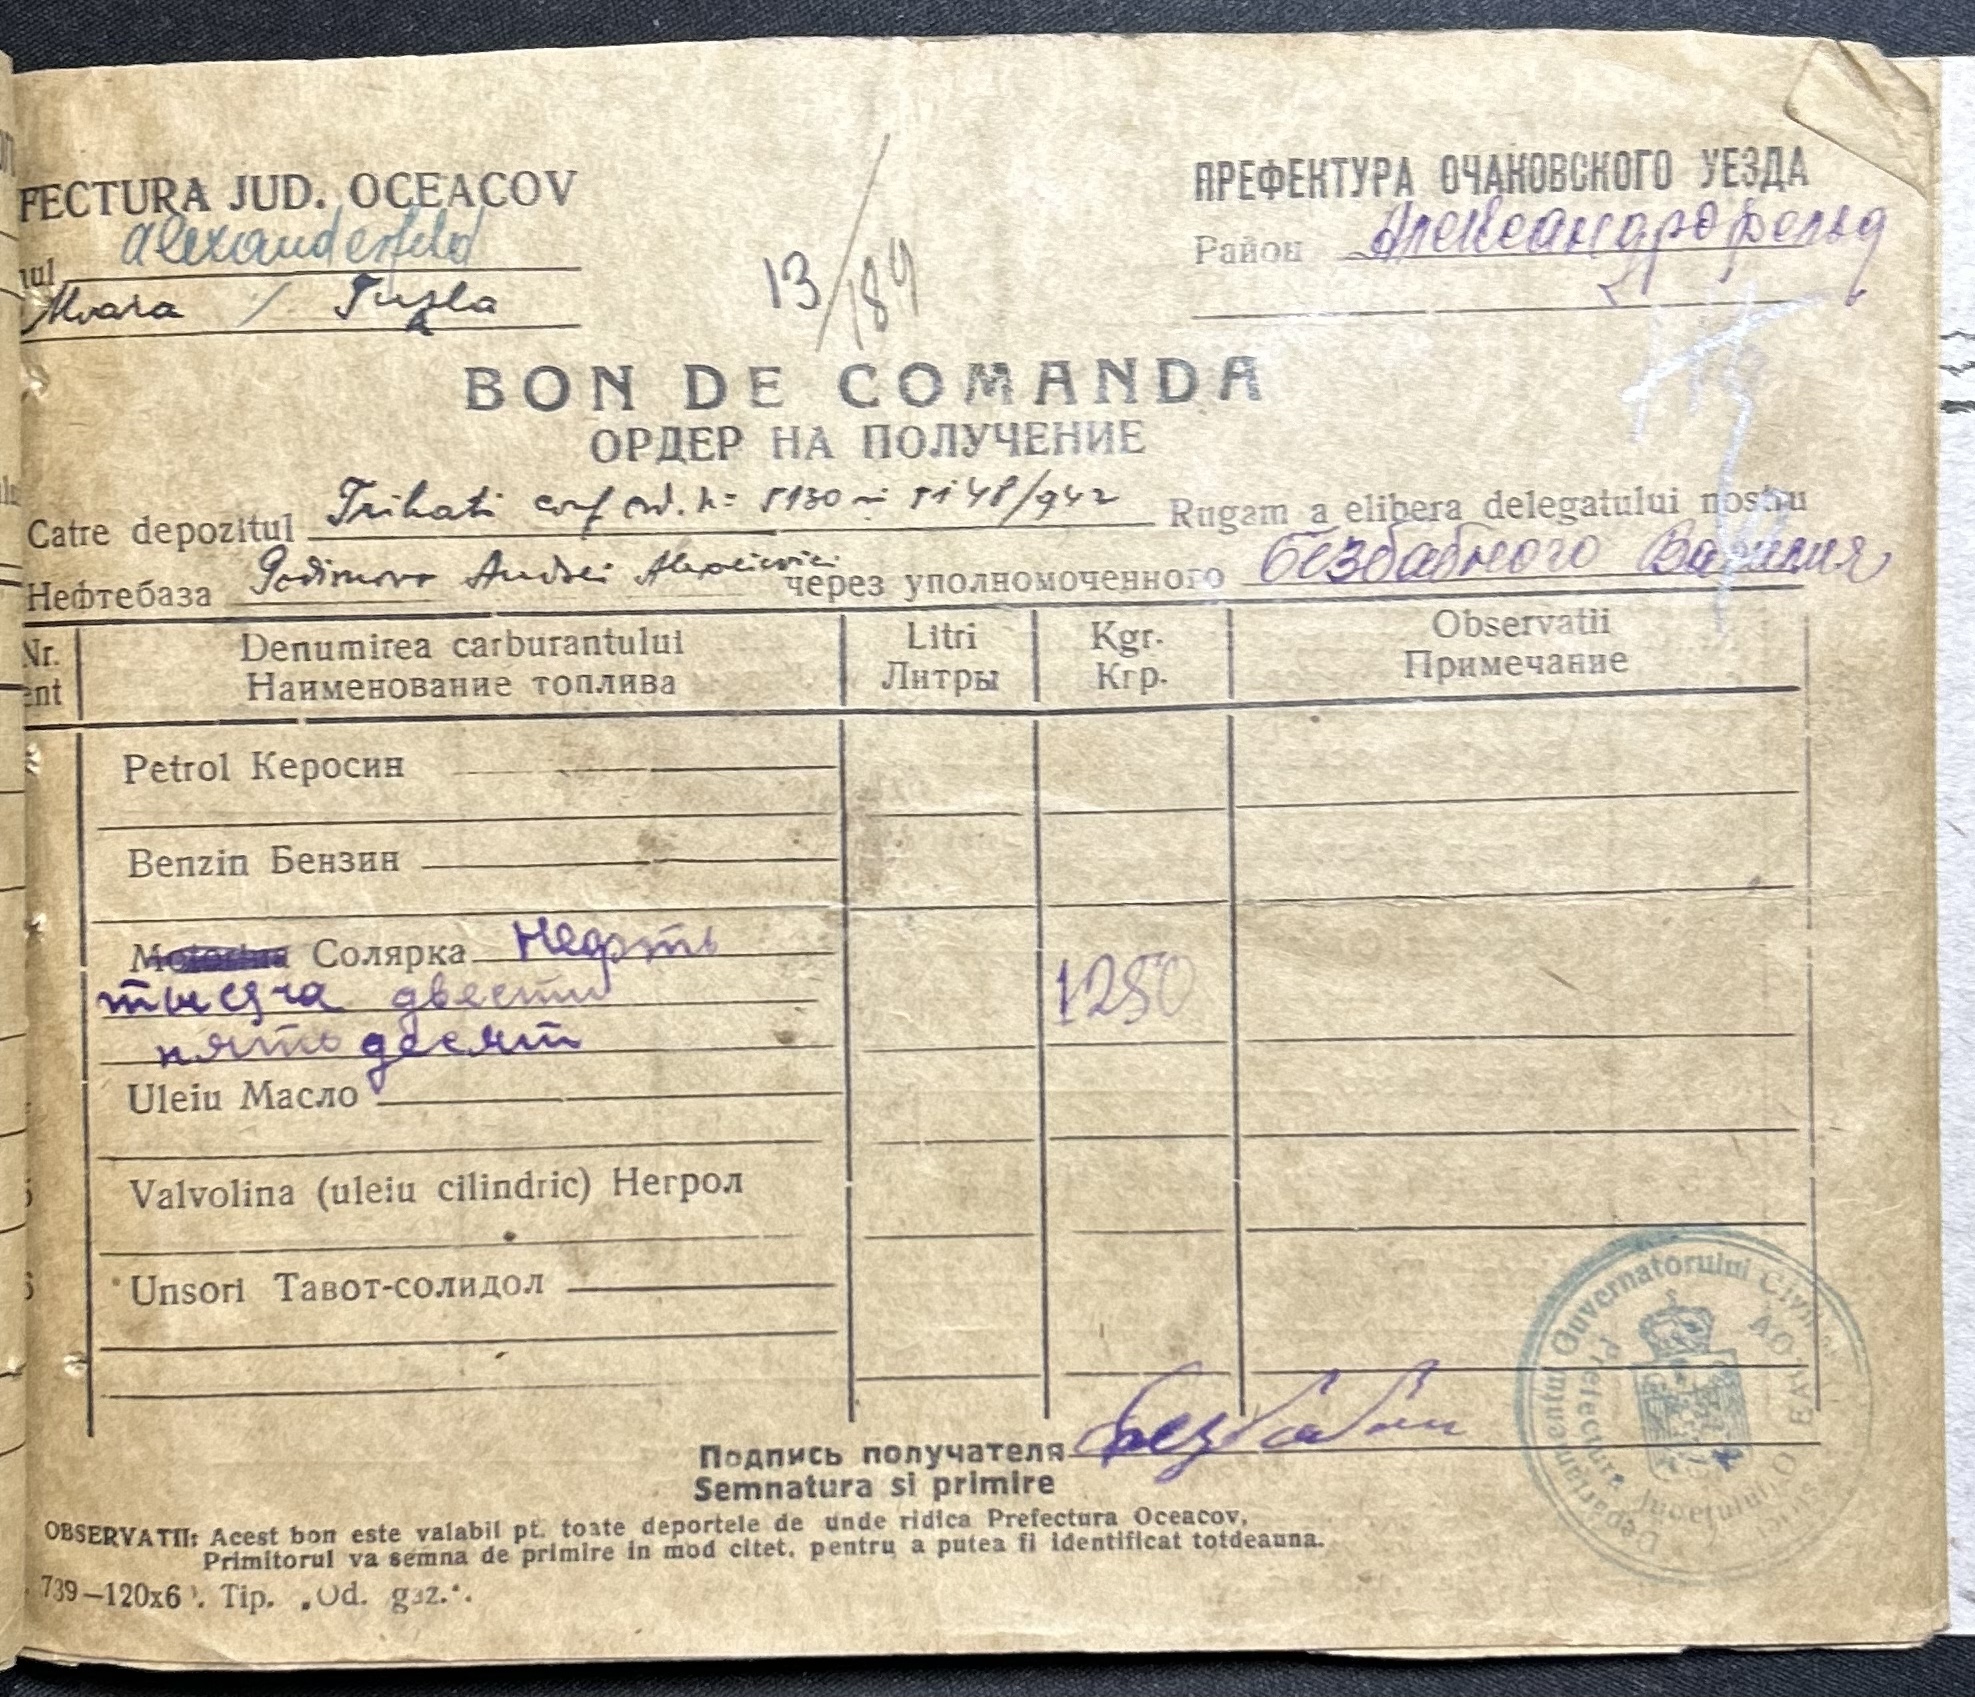 FECTURA JUD. OCEACOV
Alexanderfeld
Moara / Tuzla
13/184
ПРЕФЕКТУРА ОЧАКОВСКОГО УЕЗДА
Район Александрофельд
BON DE COMANDA
ОРДЕР НА ПОЛУЧЕНИЕ
Catre depozitul Trihati conf ord. n= 5130 5148/942 Rugam a elibera delegatului nostru
Нефтебаза Andrei через уполномоченного Безбабного Василия
Nr. Denumirea carburantului Litri Kgr. Observatii
ent Наименование топлива Литры Кгр. Примечание
Petrol Керосин
Benzin Бензин
Motorina Солярка Нефть
тысяча двести 1250
пятьдесят
Uleiu Масло
Valvolina (uleiu cilindric) Негрол
Unsori Тавот-солидол
Подпись получателя Безбабн
Semnatura si primire
OBSERVATII: Acest bon este valabil pt. toate deportele de unde ridica Prefectura Oceacov.
Primitorul va semna de primire in mod citet, pentru a putea fi identificat totdeauna.
739—120x6 . Tip. „Od. gaz.".
Guvernatorului Civil
Prefectura